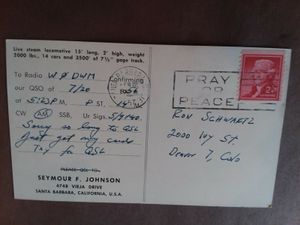 Live steam locomotive 15' long, 2' high, weight
2000 lbs., 14 cars and 3500' of 7½" gage track.
To Radio WØDWM
Confirming
our QSO of 7/20
at 5:23 P.M. P ST. 14
CW AM SSB, Ur Sigs.
Sorry so long to QSL
Just got my cards
Tnx for QSL
PLEASE QSL TO:
SEYMOUR F. JOHNSON
4745 VIEJA DRIVE
SANTA BARBARA, CALIFORNIA, U.S.A.
PRAY
FOR
PEACE
2¢
Ron Schwartz
2000 Ivy St.
Denver 7, Colo